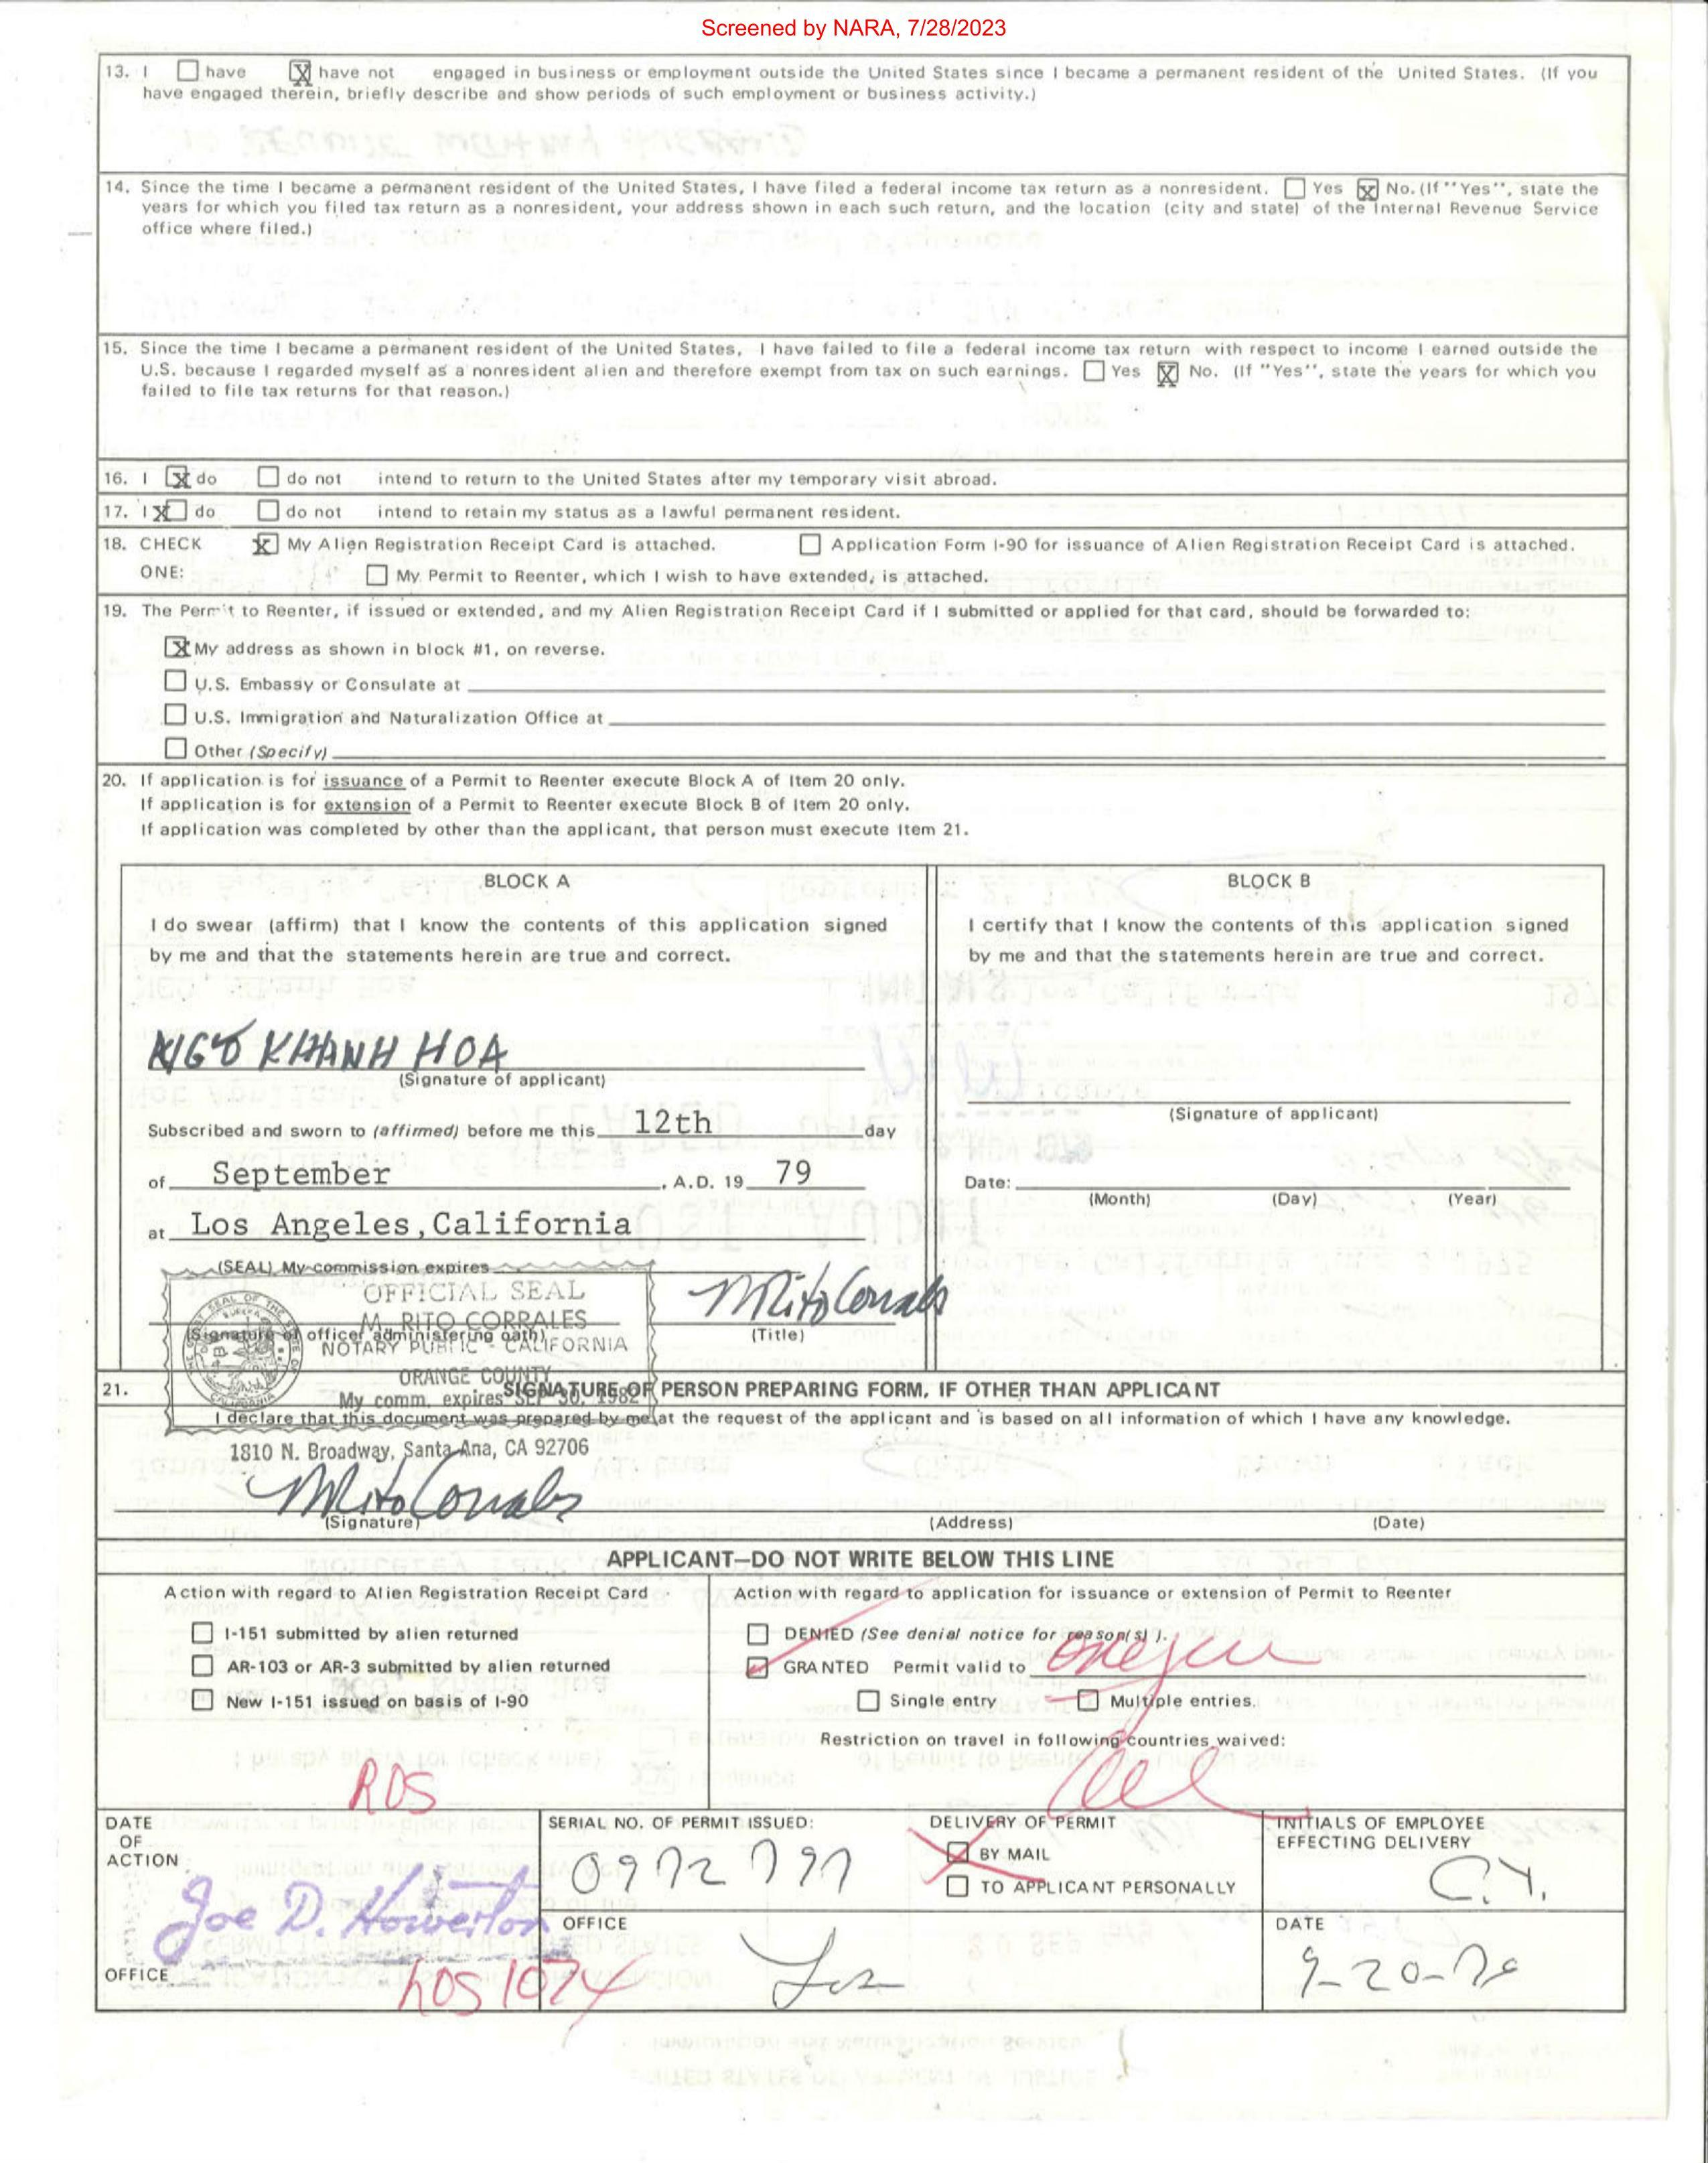 Screened by NARA, 7/28/2023
13. I ☐ have ☒ have not engaged in business or employment outside the United States since I became a permanent resident of the United States. (If you
have engaged therein, briefly describe and show periods of such employment or business activity.)
14. Since the time I became a permanent resident of the United States, I have filed a federal income tax return as a nonresident. ☐ Yes ☒ No. (If "Yes", state the
years for which you filed tax return as a nonresident, your address shown in each such return, and the location (city and state) of the Internal Revenue Service
office where filed.)
15. Since the time I became a permanent resident of the United States, I have failed to file a federal income tax return with respect to income I earned outside the
U.S. because I regarded myself as a nonresident alien and therefore exempt from tax on such earnings. ☐ Yes ☒ No. (If "Yes", state the years for which you
failed to file tax returns for that reason.)
16. I ☒ do ☐ do not intend to return to the United States after my temporary visit abroad.
17. I ☒ do ☐ do not intend to retain my status as a lawful permanent resident.
18. CHECK ☒ My Alien Registration Receipt Card is attached. ☐ Application Form I-90 for issuance of Alien Registration Receipt Card is attached.
ONE: ☐ My Permit to Reenter, which I wish to have extended, is attached.
19. The Permit to Reenter, if issued or extended, and my Alien Registration Receipt Card if I submitted or applied for that card, should be forwarded to:
☒ My address as shown in block #1, on reverse.
☐ U.S. Embassy or Consulate at
☐ U.S. Immigration and Naturalization Office at
☐ Other (Specify)
20. If application is for issuance of a Permit to Reenter execute Block A of Item 20 only.
If application is for extension of a Permit to Reenter execute Block B of Item 20 only.
If application was completed by other than the applicant, that person must execute Item 21.
BLOCK A
I do swear (affirm) that I know the contents of this application signed
by me and that the statements herein are true and correct.
NGÔ KHANH HOA
(Signature of applicant)
Subscribed and sworn to (affirmed) before me this 12th day
of September, A.D. 19 79
at Los Angeles, California
(SEAL) My commission expires
OFFICIAL SEAL
M. RITO CORRALES
NOTARY PUBLIC - CALIFORNIA
ORANGE COUNTY
My comm. expires SEP 30, 1982
M Rito Corrales
(Signature of officer administering oath) (Title)
BLOCK B
I certify that I know the contents of this application signed
by me and that the statements herein are true and correct.
(Signature of applicant)
Date:
(Month) (Day) (Year)
21. SIGNATURE OF PERSON PREPARING FORM, IF OTHER THAN APPLICANT
I declare that this document was prepared by me at the request of the applicant and is based on all information of which I have any knowledge.
1810 N. Broadway, Santa Ana, CA 92706
M Rito Corrales
(Signature) (Address) (Date)
APPLICANT—DO NOT WRITE BELOW THIS LINE
Action with regard to Alien Registration Receipt Card
☐ I-151 submitted by alien returned
☐ AR-103 or AR-3 submitted by alien returned
☐ New I-151 issued on basis of I-90
RDS
Action with regard to application for issuance or extension of Permit to Reenter
☐ DENIED (See denial notice for reason(s) ).
☑ GRANTED Permit valid to one year
☐ Single entry ☐ Multiple entries.
Restriction on travel in following countries waived:
all
DATE
OF
ACTION
Joe D. Howerton
OFFICE
LOS 1074
SERIAL NO. OF PERMIT ISSUED:
0972797
OFFICE
Los
DELIVERY OF PERMIT
☒ BY MAIL
☐ TO APPLICANT PERSONALLY
INITIALS OF EMPLOYEE
EFFECTING DELIVERY
C.Y.
DATE
9-20-79